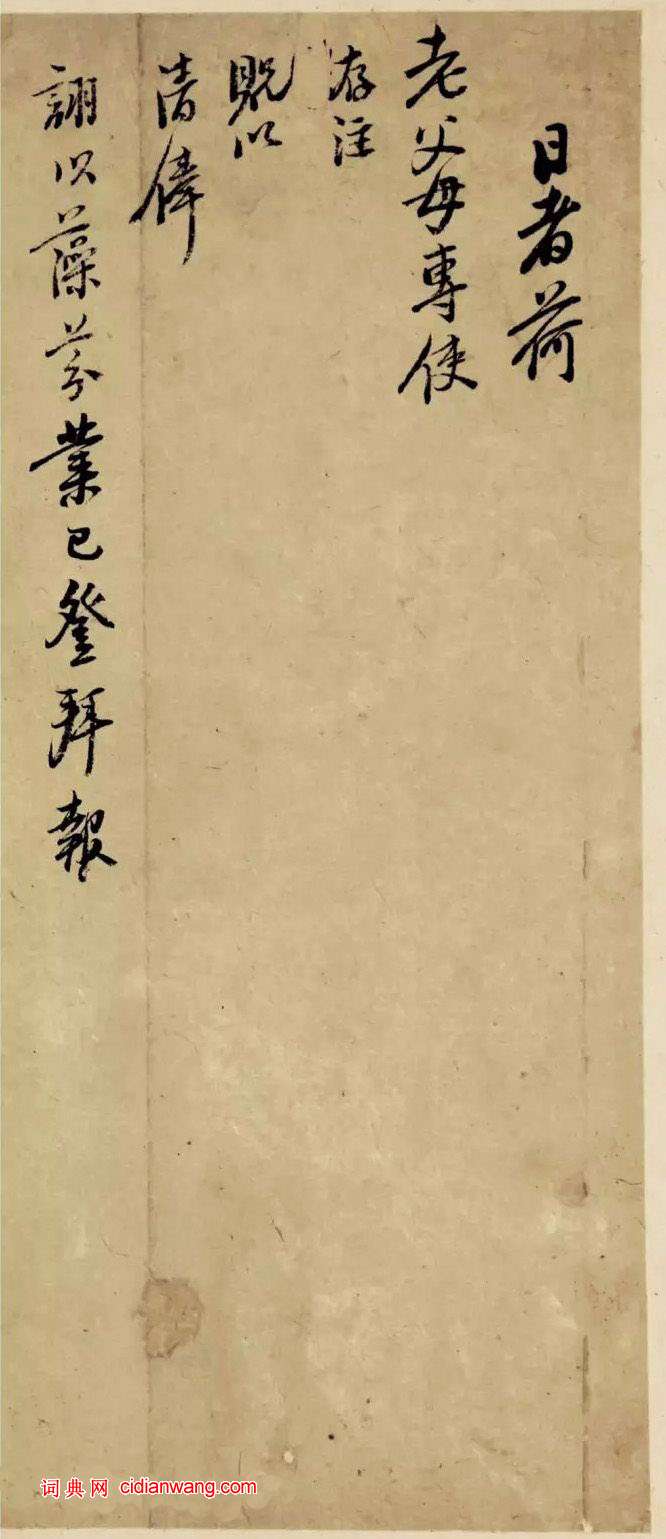 日者荷
老父母專使
存注
貺以
清俸
詡以藻芬業已登拜報
词典网 cidianwang.com